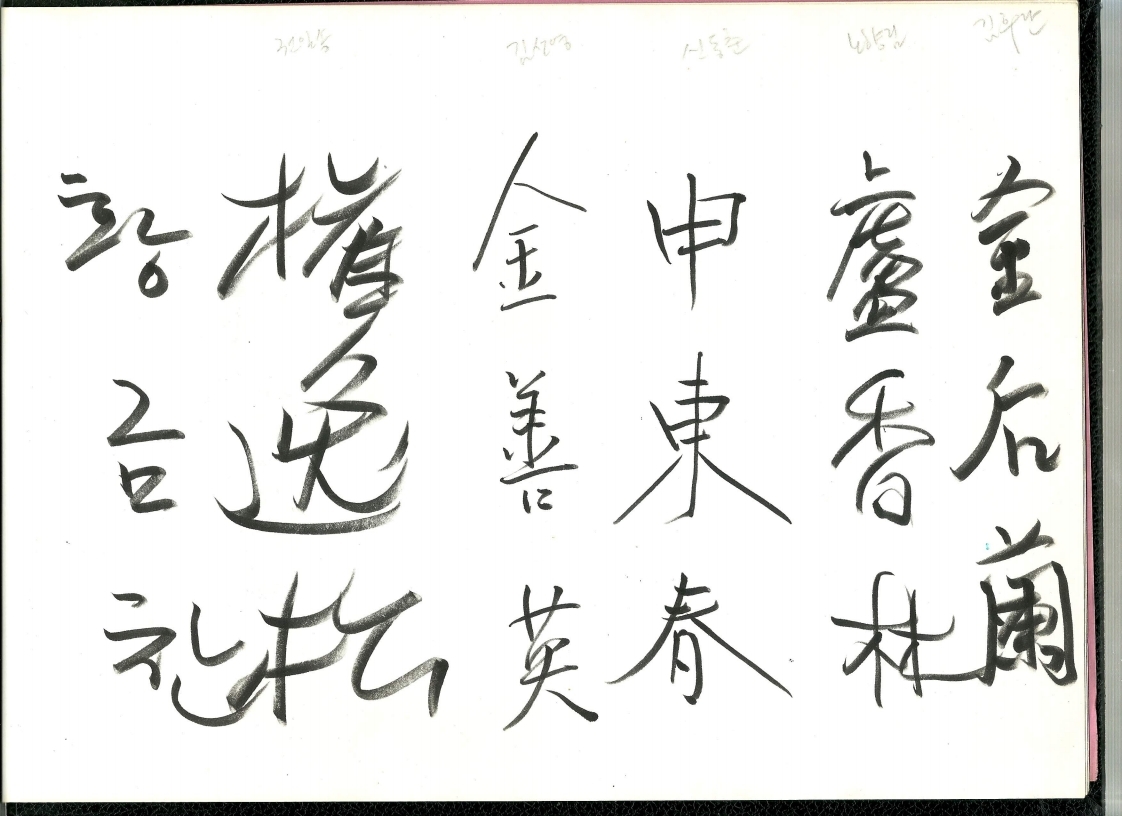 김후란
金后蘭
노향림
盧香林
신동춘
申東春
김선영
金善英
권일송
權逸松
황금찬